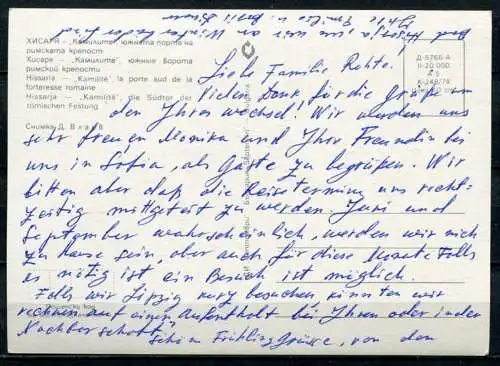 ХИСАРЯ — „Камилите“, южната порта на
римската крепост
Хисаря — „Камилите“, южные ворота
римской крепости
Hissaria — „Kamilité“, la porte sud de la
forteresse romaine
Hissarja — „Kamilite“, die Südtor der
römischen Festung
Снимка Д. Влаев
Д-5766-А
Liebe Familie Rohte.
Vielen Dank für die Grüße an
den Ihren Wechsel! Wir würden uns
sehr freuen Monika und Ihre Freundin bei
uns in Sofia, als Gäste zu begrüßen. Wir
bitten aber daß die Reisetermine uns recht-
zeitig mitgeteit zu werden Juni und
September wahrscheinlich, werden wir nich
zu hause sein, aber auch für diese Monate Falls
es nötig ist ein Besuch ist möglich.
Falls wir Leipzig kurz besuchen könnten wir
rechnen auf einen Aufenthalt bei Ihnen oder in der
Nachberschaft?
Schöne Frühling Grüsse, von den